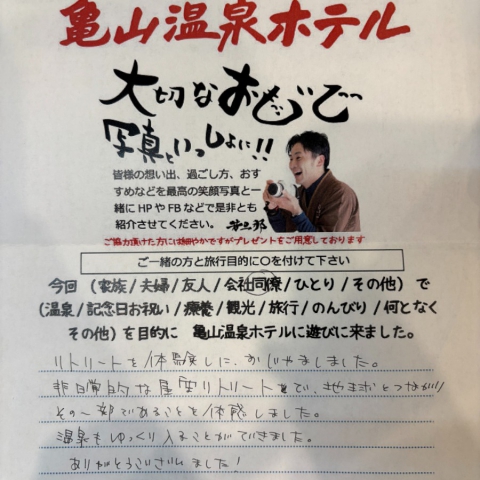 亀山温泉ホテル
大切なおもいで
写真といっしょに!!
皆様の想い出、過ごし方、おす
すめなどを最高の笑顔写真と一
緒にHPやFBなどで是非とも
紹介させてください。
ご協力頂けた方には細やかですがプレゼントをご用意しております
ご一緒の方と旅行目的に○を付けて下さい
今回(家族/夫婦/友人/会社同僚/ひとり/その他)で
(温泉/記念日お祝い/療養/観光/旅行/のんびり/何となく
その他)を目的に 亀山温泉ホテルに遊びに来ました。
リトリートを体験しに、おじゃましました。
非日常的な星空リトリートをで、地球とつながり
その一部であることを体感しました。
温泉もゆっくり入ることができました。
ありがとうございました!